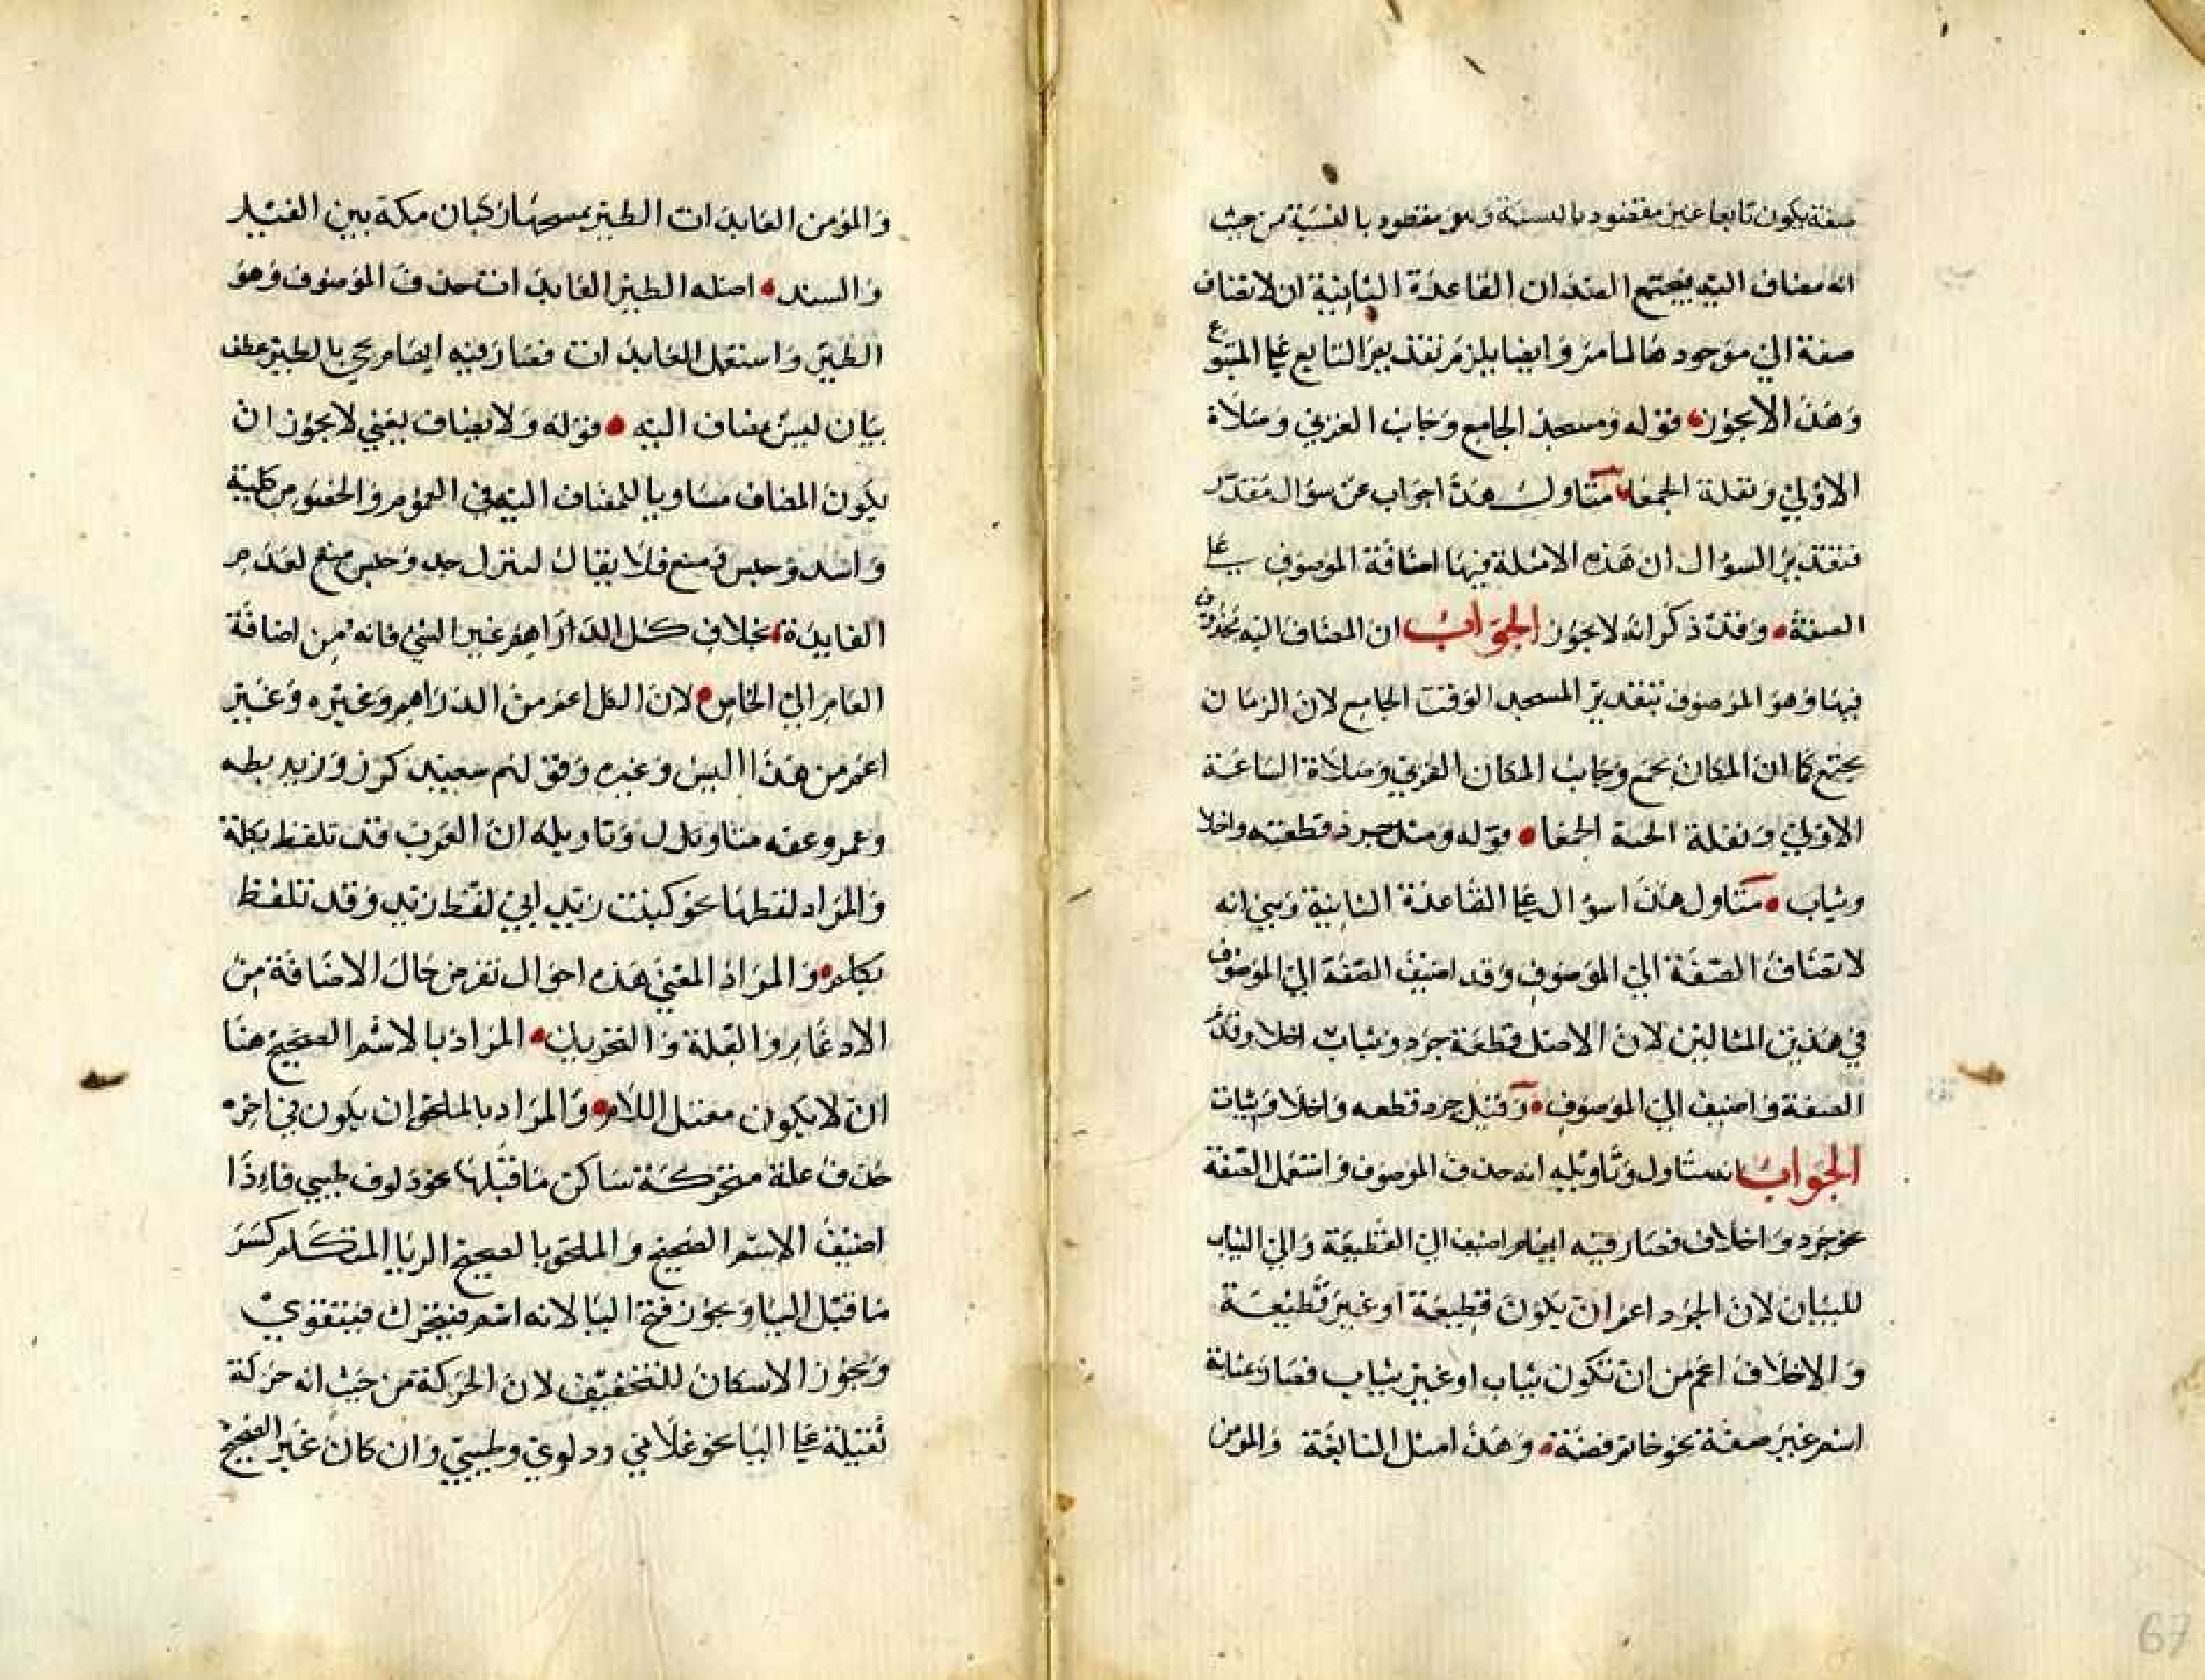 صفة يكون تابعا غير مقصود بالنسبة وهو مقصود بالنسبة من حيث
انه مضاف اليه فيجتمع الضدان القاعدة الثانية ان لا تضاف
صفة الي موجود هالمامر وايضا يلزم تقديم التابع علي المتبوع
وهذا لا يجوز قوله ومسجد الجامع وجانب الغربي وصلاة
الاولي وبقلة الحمقا متاول هذا جواب عن سوال مقدر
فتقدير السوال ان هذه الامثلة فيها اضافة الموصوف علي
الصفة وقد ذكر انه لا يجوز الجواب ان المضاف اليه محذوف
فيها وهو الموصوف بتقدير المسجد الوقت الجامع لان الزمان
يجتمع كما ان المكان يجمع وجانب المكان الغربي وصلاة الساعة
الاولي وبقلة الحبة الحمقا قوله ومثل جرد قطيفة واخلا
وثياب متاول هذا سوال علي القاعدة الثانية وهي انه
لا تضاف الصفة الي الموصوف وقد اضيف الصفة الي الموصوف
في هذين المثالين لان الاصل قطعة جرد وثياب اخلا وقدم
الصفة واضيف الي الموصوف وقيل جرد قطعه واخلاق ثياب
الجواب انه متاول وتاويله انه حذف الموصوف واستعمل الصفة
نحو جرد واخلاف فصار فيه ايهام اضيف الي القطيعة والي الثياب
للبيان لان الجرد اعم ان يكون قطيعة او غير قطيعة
والاخلاف اعم من ان تكون ثياب او غير ثياب فصار بمثابة
اسم غير صفة نحو خاتم فضة وهذا مثل النابغة والمومن
والمومن العايذات الطير يمسحها ركبان مكة بين الغيل
والسند اصله الطير العايذات حذف الموصوف وهو
الطير واستعمل العايذات فصار فيه ايهام يجي بالطير عطف
بيان ليس مضاف اليه قوله ولا يضاف يعني لا يجوز ان
يكون المضاف مساويا للمضاف اليه في العموم والخصوص كليث
واسد وحبس ومنع فلا يقال ليث اسد وحبس منع لعدم
الفايدة بخلاف كل الدراهم عين الشي فانه من اضافة
العام الي الخاص لان الكل اعم من الدراهم وغيره وغير
اعم من هذا الشي وغيره وقولهم سعيد كرز وزيد بطه
وعمرو عفه متاول وتاويله ان العرب قد تلفظ بكلمة
والمراد لفظها نحو كتبت زيد اي لفظ زيد وقد تتلفظ
بكلم والمراد المعني هذه احوال تعرض حال الاضافة من
الادغام والقلة والتحريك المراد بالاسم الصحيح هنا
ان لا يكون معتل اللام والمراد بالملحق ان يكون في اخره
حذف علة متحركة ساكن ما قبلها نحو دلو ف ظبي فاذا
اضيف الاسم الصحيح والملحق بالصحيح الي يا المتكلم كسر
ما قبل اليا ويجوز فتح اليا لانه اسم فيتحرك فيتقوي
ويجوز الاسكان للتخفيف لان الحركة من حيث انه حركة
ثقيلة علي اليا نحو غلامي ودلوي وظبيي وان كان غير الصحيح
67